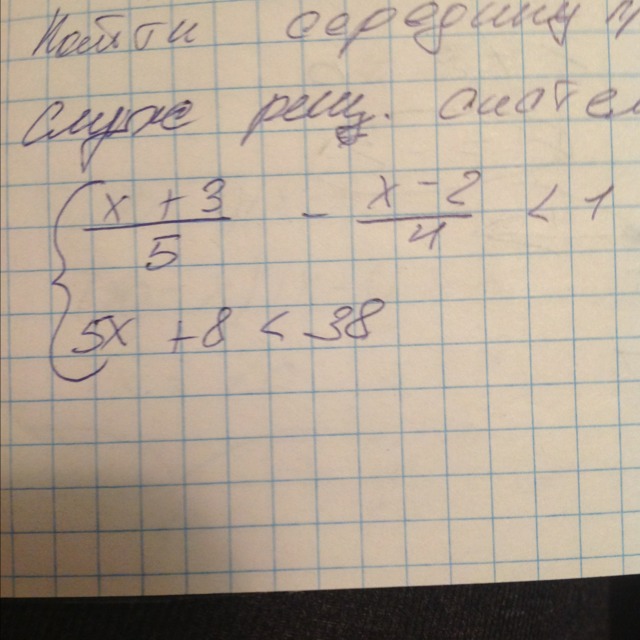 Найти середину п
служе реш. систем
{ x + 3 / 5 - x - 2 / 4 < 1
5x + 8 < 38